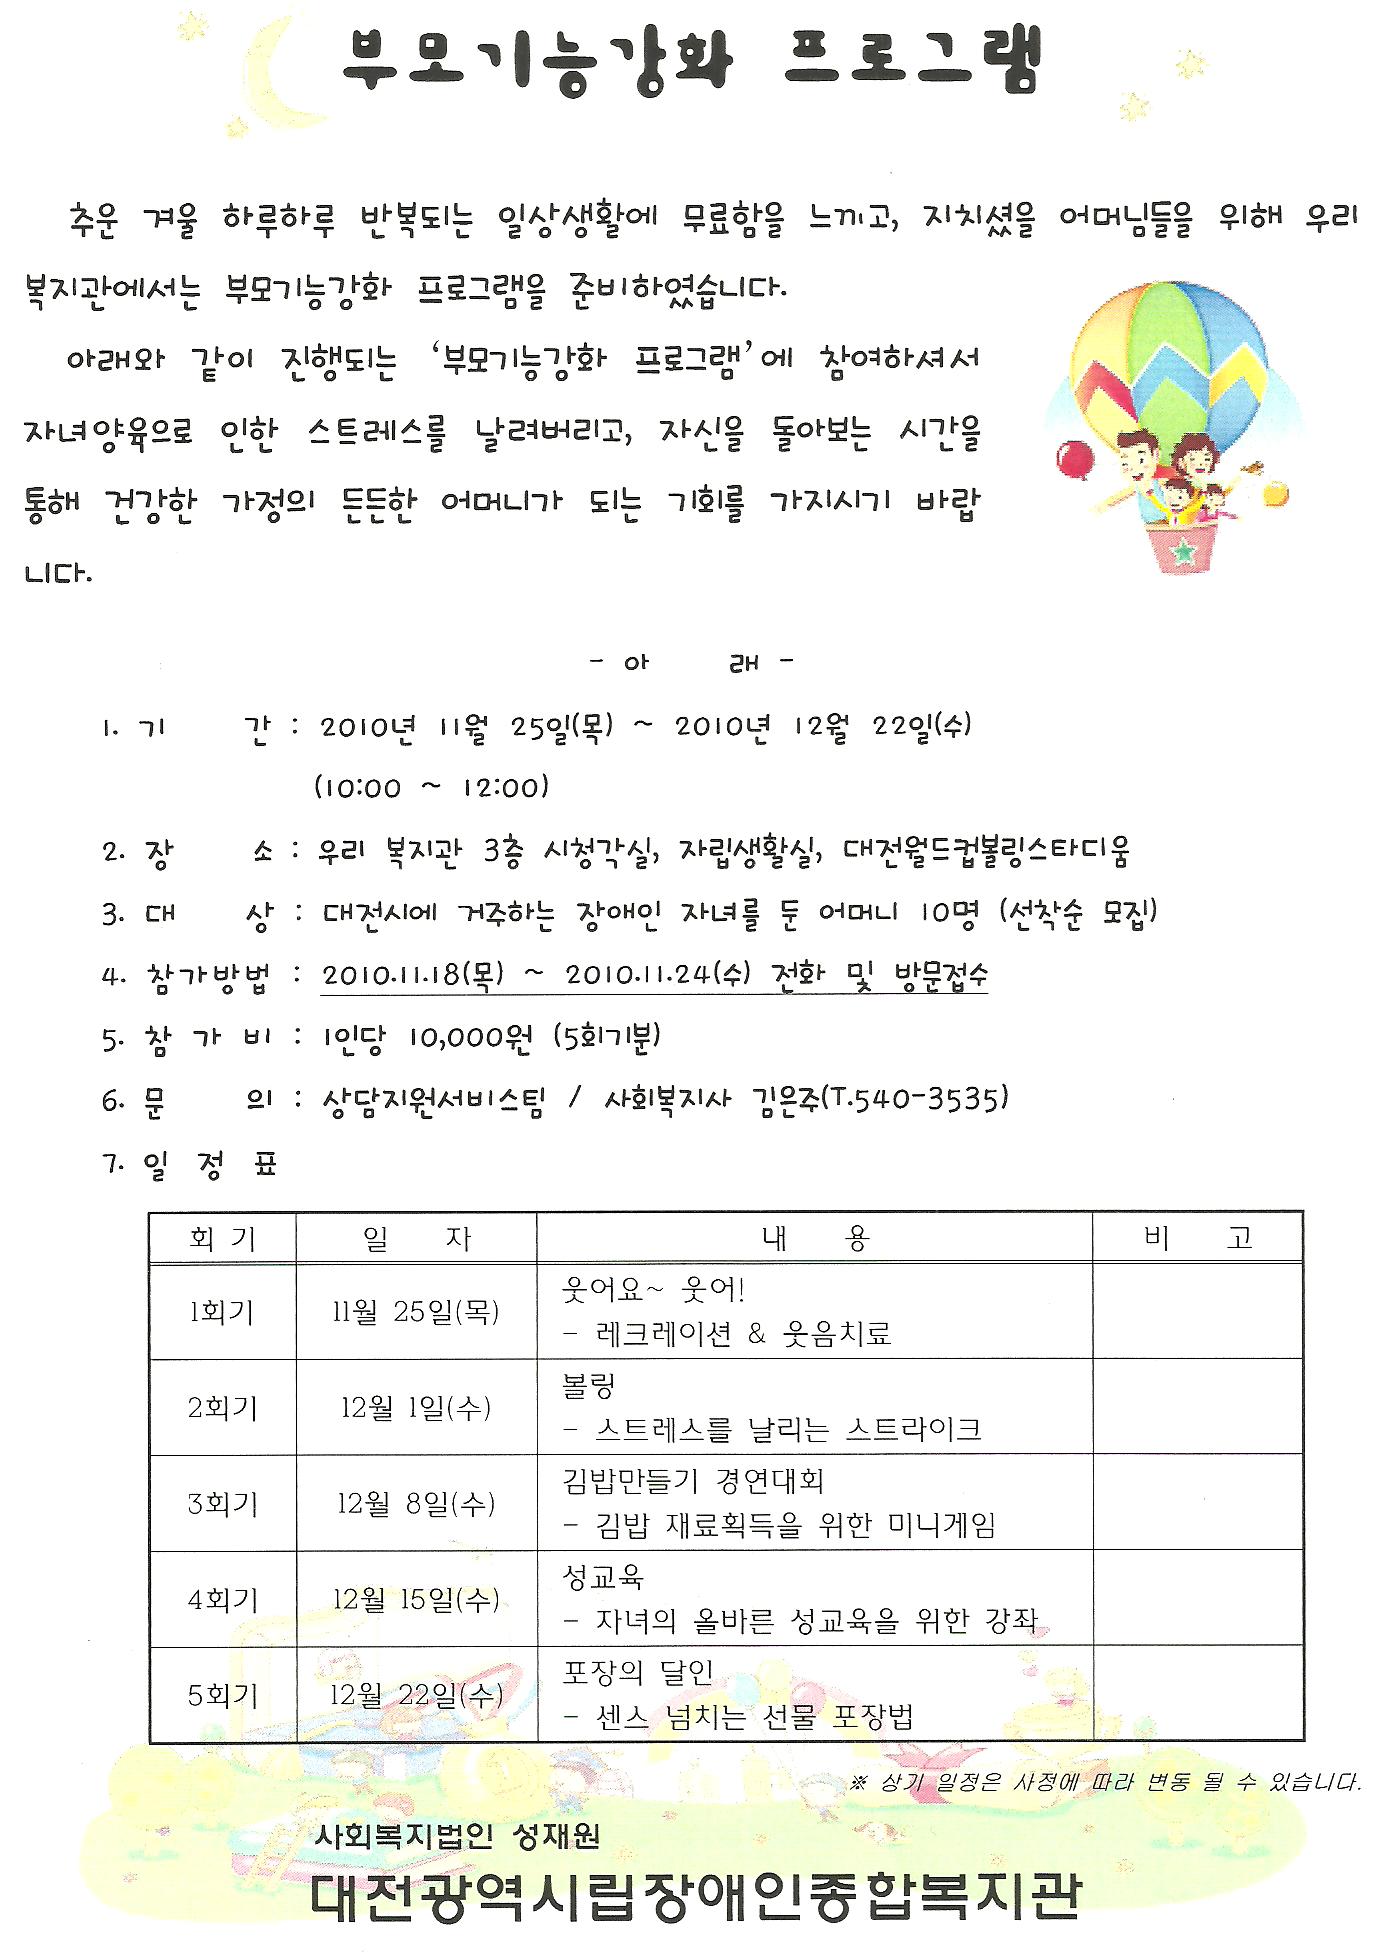 부모기능강화 프로그램
추운 겨울 하루하루 반복되는 일상생활에 무료함을 느끼고, 지치셨을 어머님들을 위해 우리
복지관에서는 부모기능강화 프로그램을 준비하였습니다.
아래와 같이 진행되는 ‘부모기능강화 프로그램’에 참여하셔서
자녀양육으로 인한 스트레스를 날려버리고, 자신을 돌아보는 시간을
통해 건강한 가정의 든든한 어머니가 되는 기회를 가지시기 바랍
니다.
- 아 래 -
1. 기 간 : 2010년 11월 25일(목) ~ 2010년 12월 22일(수)
(10:00 ~ 12:00)
2. 장 소 : 우리 복지관 3층 시청각실, 자립생활실, 대전월드컵볼링스타디움
3. 대 상 : 대전시에 거주하는 장애인 자녀를 둔 어머니 10명 (선착순 모집)
4. 참가방법 : 2010.11.18(목) ~ 2010.11.24(수) 전화 및 방문접수
5. 참 가 비 : 1인당 10,000원 (5회기분)
6. 문 의 : 상담지원서비스팀 / 사회복지사 김은주(T.540-3535)
7. 일 정 표
회 기 일 자 내 용 비 고
1회기 11월 25일(목) 웃어요~ 웃어!
- 레크레이션 & 웃음치료
2회기 12월 1일(수) 볼링
- 스트레스를 날리는 스트라이크
3회기 12월 8일(수) 김밥만들기 경연대회
- 김밥 재료획득을 위한 미니게임
4회기 12월 15일(수) 성교육
- 자녀의 올바른 성교육을 위한 강좌
5회기 12월 22일(수) 포장의 달인
- 센스 넘치는 선물 포장법
※ 상기 일정은 사정에 따라 변동 될 수 있습니다.
사회복지법인 성재원
대전광역시립장애인종합복지관